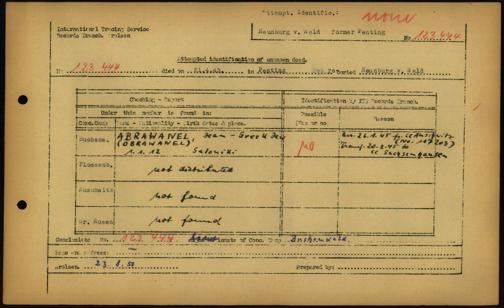 Attempt. Identific.: none
International Tracing Service
Records Branch. Arolsen
Neunburg v. Wald former Kenting
No 123.444
Attempted identification of unknown dead.
No 123.444 died on 21.4.45. in Kenting Neunburg v. Wald
Checking - Report
Identification by ITS Records Branch.
Under this number is found in:
Possible
Reason
Conc.Camp
Name - Nationality - birth dates & place.
Yes or no
Buchenw.
ABRAWANEL, Jean - Greek Jew
(OBRAWANEL)
1.1.12 Saloniki
no
26.1.45 fr. CC Auschwitz
Transf. 20.2.45 to
CC Sachsenhausen
Flossenb.
not distributed
Auschwitz
not found
Gr. Rosen
not found
Conclusion: No. 123.444 inmate of Conc. Camp Buchenwald.
Arolsen 23.8.50 Prepared by: